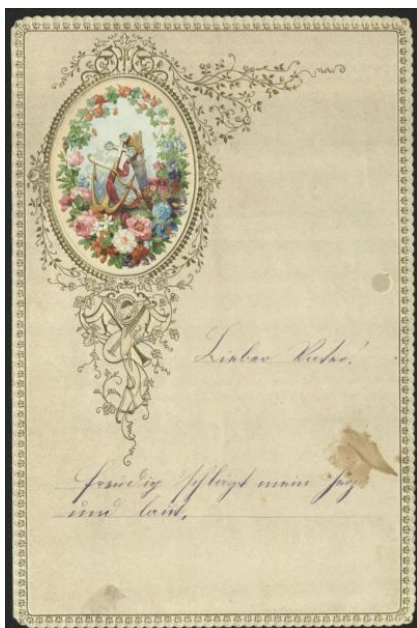 Lieber Vater!
Freudig schlägt mein Herz
und